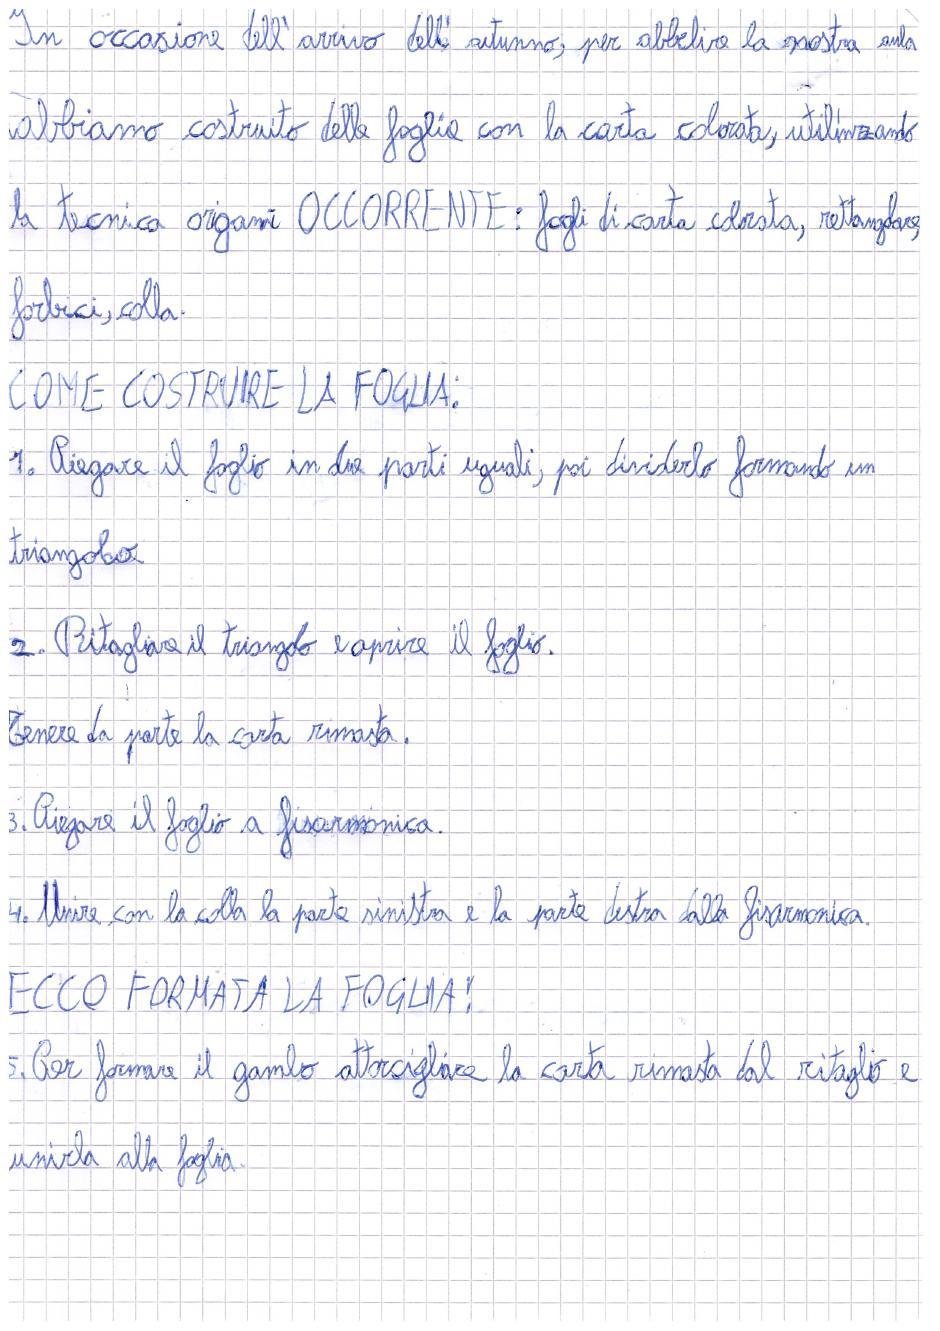 In occasione dell'arrivo dell'autunno, per abbelire la nostra aula
abbiamo costruito delle foglie con la carta colorata, utilizzando
la tecnica origami OCCORRENTE: fogli di carta colorata, rettangolare,
forbici, colla.
COME COSTRUIRE LA FOGLIA:
1. Piegare il foglio in due parti uguali, poi dividerlo formando un
triangolo
2. Ritagliare il triangolo e aprire il foglio.
Tenere da parte la carta rimasta.
3. Piegare il foglio a fisarmonica.
4. Unire con la colla la parte sinistra e la parte destra dalla fisarmonica.
ECCO FORMATA LA FOGLIA!
5. Per formare il gambo attorcigliare la carta rimasta dal ritaglio e
unirla alla foglia.